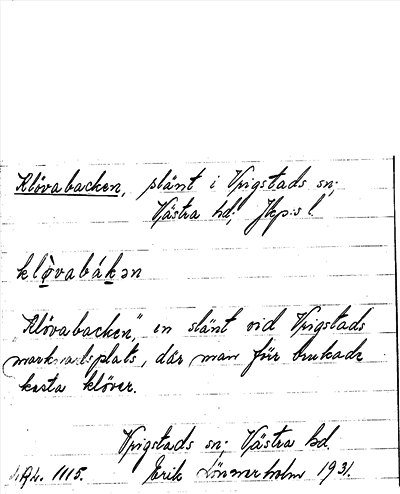 Klövabacken, slänt i Vrigstads sn;
Västra hd; Jkp:s l.
klo̱vabák̠ən
"Klövabacken", en slänt vid Vrigstads
marknadsplats, där man förr brukade
kasta klöver.
Vrigstads sn; Västra hd.
1115. Erik Lönnerholm 1931.